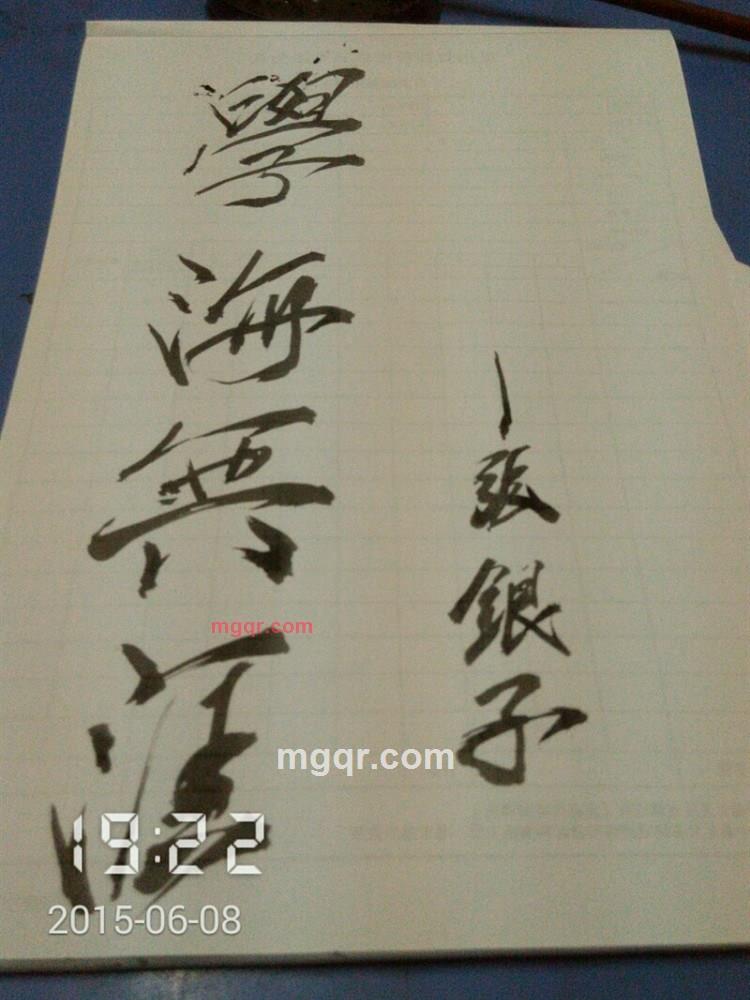 學海無涯
—張銀子
mgqr.com
mgqr.com
19:22
2015-06-08